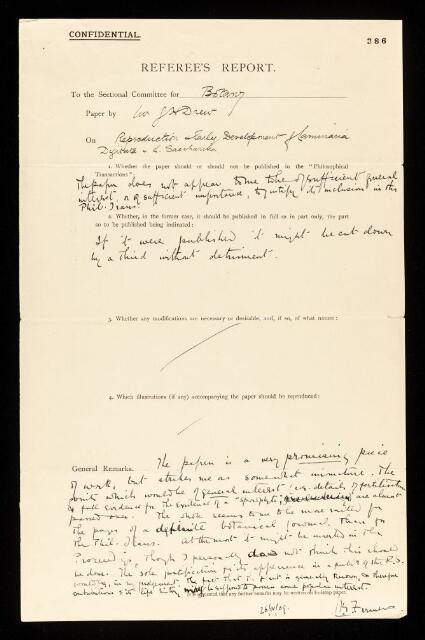 CONFIDENTIAL.
286
REFEREE'S REPORT.
To the Sectional Committee for Botany
Paper by Mr G H Drew
On Reproduction & Early Development of Laminaria
Digitata & L. Saccharina
1. Whether the paper should or should not be published in the "Philosophical
Transactions":
The paper does not appear to me to be of sufficient general
interest, or of sufficient importance, to justify its inclusion in the
Phil. Trans.
2. Whether, in the former case, it should be published in full or in part only, the part
so to be published being indicated:
If it were published it might be cut down
by a third without detriment.
3. Whether any modifications are necessary or desirable, and, if so, of what nature:
4. Which illustrations (if any) accompanying the paper should be reproduced:
General Remarks. The paper is a very promising piece
of work, but strikes me as somewhat immature. The
points which would be of general interest (e.g. details of fertilisation
& full evidence for the existence of a "sporophyte", are almost
passed over. The whole seems to me more suited for
the pages of a definite botanical journal than for
the Phil. Trans. At the most it might be inserted in the
Proceedings, though I personally do not think this should
be done. The sole justification for its appearance in a publn of the R.S.
would be, in my judgement, the fact that the plant is generally known, & therefore
contributions to its life history may be supposed to possess some popular interest.
It is requested that any further remarks may be written on foolscap paper.
J B Farmer